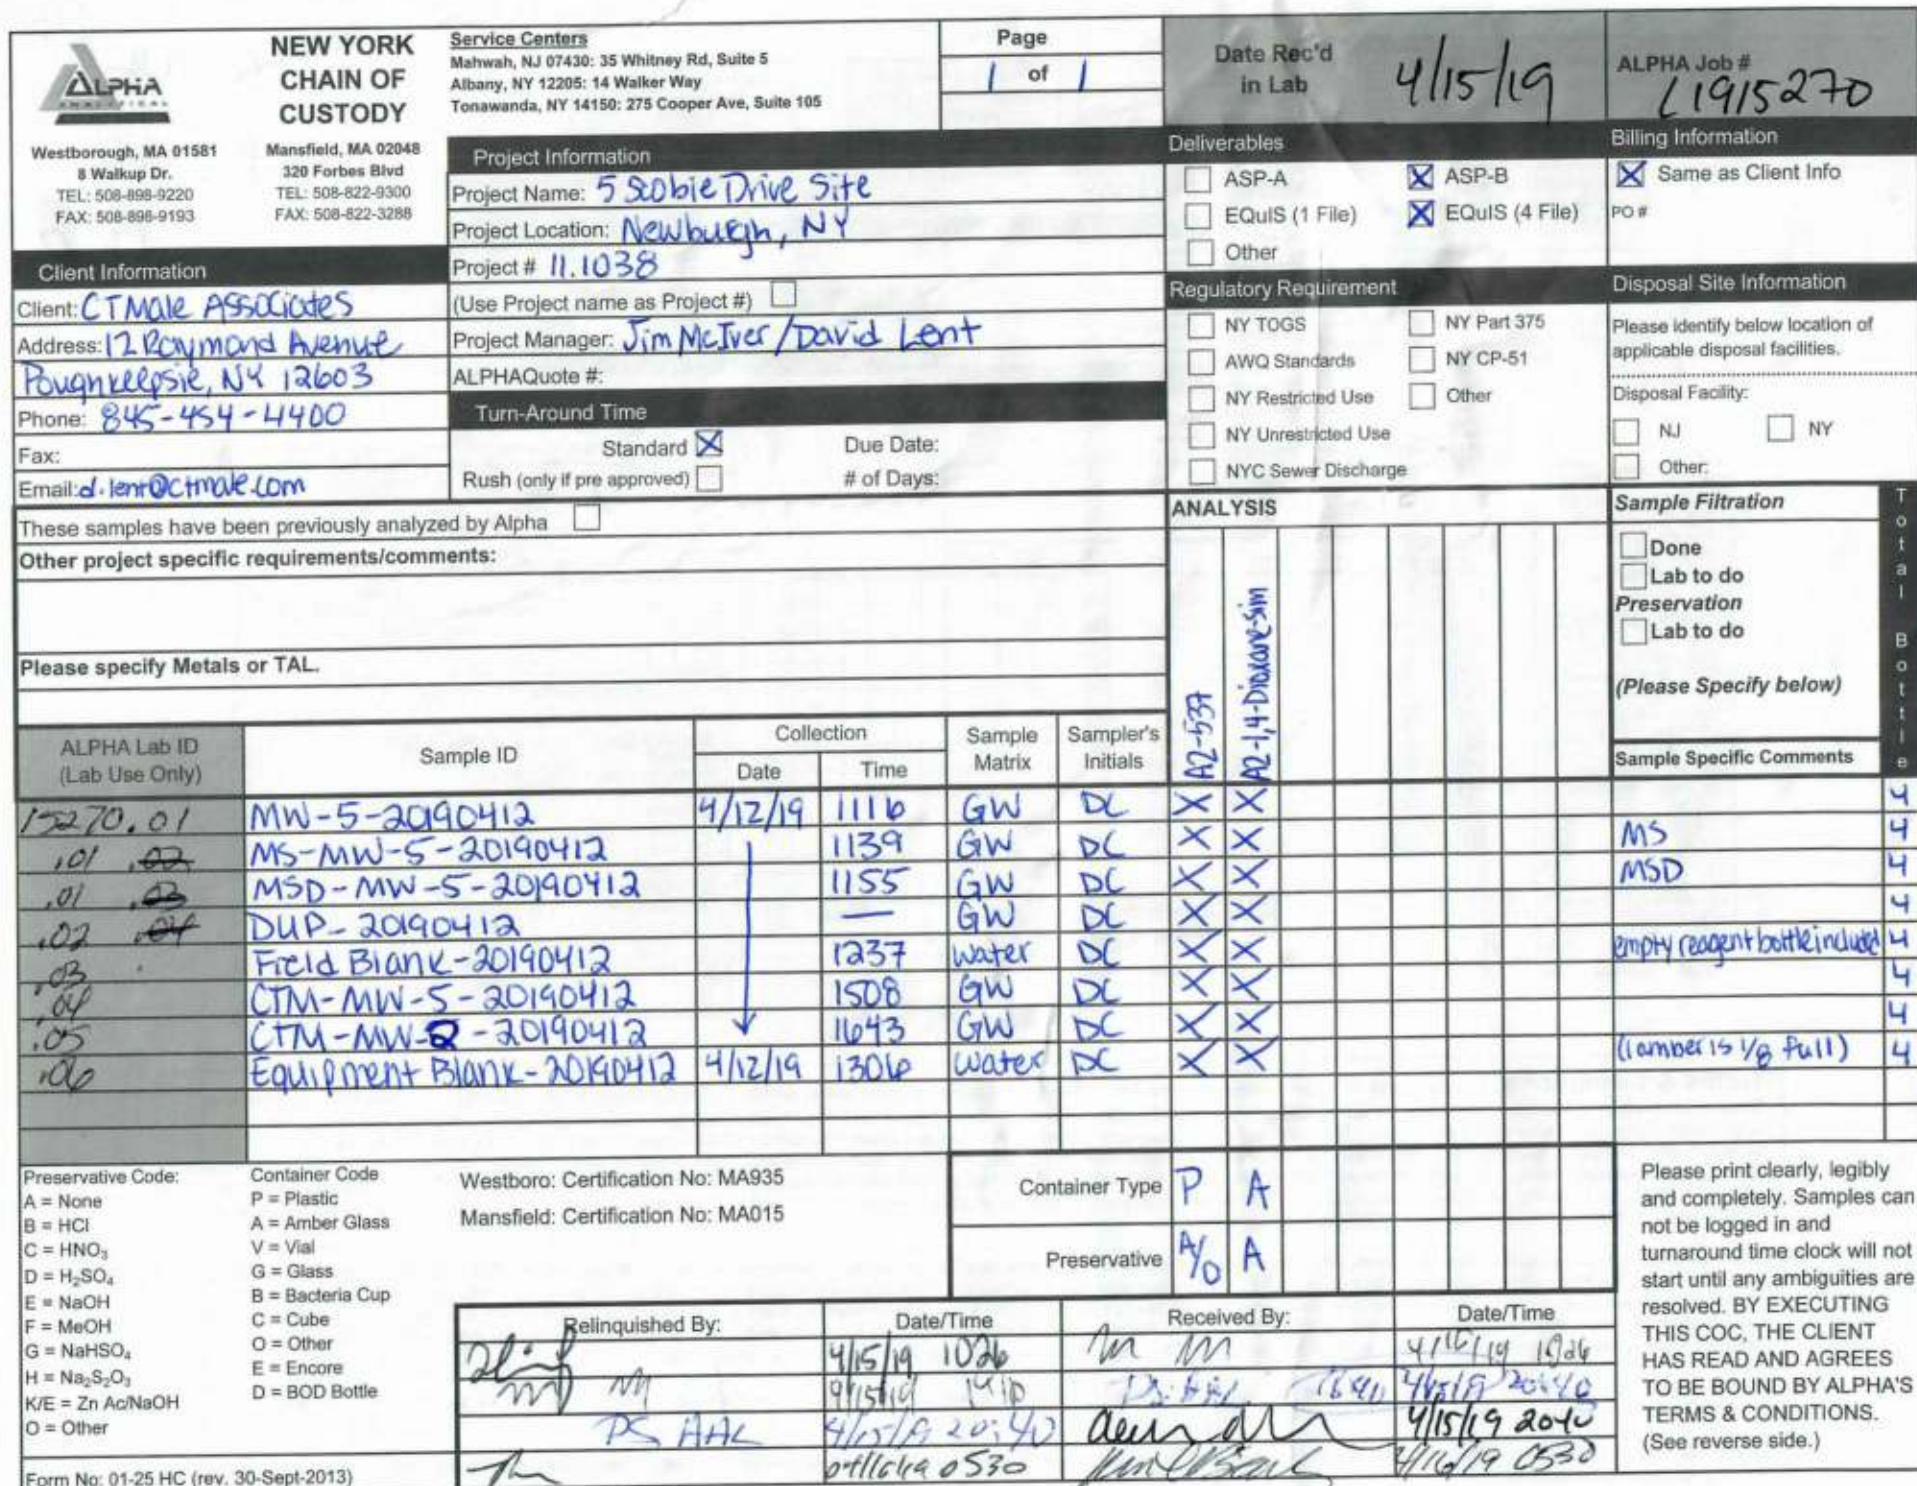 ALPHA
ANALYTICAL
Westborough, MA 01581
8 Walkup Dr.
TEL: 508-898-9220
FAX: 508-898-9193
NEW YORK
CHAIN OF
CUSTODY
Mansfield, MA 02048
320 Forbes Blvd
TEL: 508-822-9300
FAX: 508-822-3288
Service Centers
Mahwah, NJ 07430: 35 Whitney Rd, Suite 5
Albany, NY 12205: 14 Walker Way
Tonawanda, NY 14150: 275 Cooper Ave, Suite 105
Page
1 of 1
Date Rec'd
in Lab
4/15/19
ALPHA Job #
L1915270
Project Information
Project Name: 5 Scobie Drive Site
Project Location: Newburgh, NY
Project # 11.1038
(Use Project name as Project #)
Project Manager: Jim McIver/David Lent
ALPHAQuote #:
Turn-Around Time
Standard X Due Date:
Rush (only if pre approved) # of Days:
Client Information
Client: CTMale Associates
Address: 12 Raymond Avenue
Poughkeepsie, NY 12603
Phone: 845-454-4400
Fax:
Email: d.lent@ctmale.com
Deliverables
ASP-A X ASP-B
EQuIS (1 File) X EQuIS (4 File)
Other
Billing Information
X Same as Client Info
PO #
Regulatory Requirement
NY TOGS NY Part 375
AWQ Standards NY CP-51
NY Restricted Use Other
NY Unrestricted Use
NYC Sewer Discharge
Disposal Site Information
Please identify below location of
applicable disposal facilities.
Disposal Facility:
NJ NY
Other:
These samples have been previously analyzed by Alpha
Other project specific requirements/comments:
Please specify Metals or TAL.
ANALYSIS
A2-537
A2-1,4-Dioxane-sim
Sample Filtration
Done
Lab to do
Preservation
Lab to do
(Please Specify below)
Total Bottle
ALPHA Lab ID
(Lab Use Only)
Sample ID
Collection
Date Time
Sample
Matrix
Sampler's
Initials
Sample Specific Comments
15270.01 MW-5-20190412 4/12/19 1116 GW DC X X 4
.01 .02 MS-MW-5-20190412 1139 GW DC X X MS 4
.01 .03 MSD-MW-5-20190412 1155 GW DC X X MSD 4
.02 .04 DUP-20190412 — GW DC X X 4
.03 Field Blank-20190412 1237 Water DC X X empty reagent bottle included 4
.04 CTM-MW-5-20190412 1508 GW DC X X 4
.05 CTM-MW-2-20190412 1643 GW DC X X 4
.06 Equipment Blank-20190412 4/12/19 1306 Water DC X X (1 amber is 1/8 full) 4
Preservative Code:
A = None
B = HCl
C = HNO₃
D = H₂SO₄
E = NaOH
F = MeOH
G = NaHSO₄
H = Na₂S₂O₃
K/E = Zn Ac/NaOH
O = Other
Container Code
P = Plastic
A = Amber Glass
V = Vial
G = Glass
B = Bacteria Cup
C = Cube
O = Other
E = Encore
D = BOD Bottle
Westboro: Certification No: MA935
Mansfield: Certification No: MA015
Container Type P A
Preservative A/O A
Relinquished By: Date/Time Received By: Date/Time
4/15/19 1026
PS AAL 4/15/19 20:40 4/15/19 2040
04/16/19 0530 4/16/19 0530
Please print clearly, legibly
and completely. Samples can
not be logged in and
turnaround time clock will not
start until any ambiguities are
resolved. BY EXECUTING
THIS COC, THE CLIENT
HAS READ AND AGREES
TO BE BOUND BY ALPHA'S
TERMS & CONDITIONS.
(See reverse side.)
Form No: 01-25 HC (rev. 30-Sept-2013)